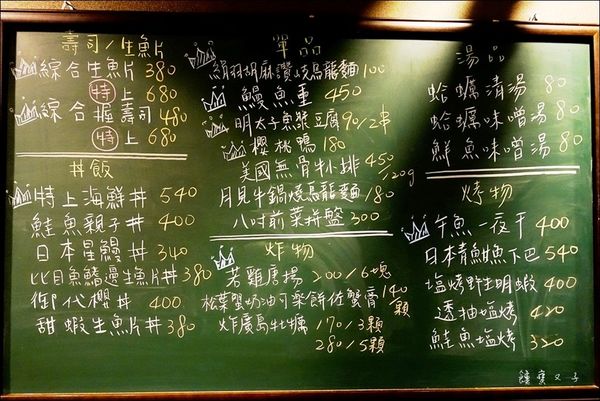 壽司/生魚片
綜合生魚片 380
特上 680
綜合握壽司 480
特上 680
丼飯
特上海鮮丼 540
鮭魚親子丼 400
日本星鰻丼 340
比目魚鰭邊生魚片丼 380
御代櫻丼 400
甜蝦生魚片丼 380
單品
絹羽胡麻讚岐烏龍麵 100
鰻魚重 450
明太子魚漿豆腐 90/2串
櫻桃鴨 180
美國無骨牛小排 450/120g
月見牛鍋燒烏龍麵 180
八吋前菜拼盤 300
炸物
若雞唐揚 200/6塊
松葉蟹奶油可樂餅佐蟹膏 140/顆
炸廣島牡蠣 170/3顆
280/5顆
湯品
蛤蠣清湯 80
蛤蠣味噌湯 80
鮮魚味噌湯 80
烤物
午魚一夜干 400
日本青魽魚下巴 540
塩烤野生明蝦 400
透抽塩烤 420
鮭魚塩烤 320